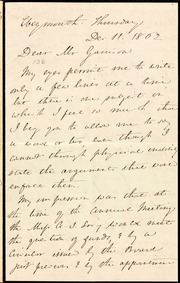 Weymouth Thursday
Dec 11. 1862
Dear Mr Garrison
My eyes permit me to write
only a few lines at a time
but there is one subject on
which I feel so much that
I beg you to allow me to say
a word or two even though I
cannot through physical inability
state the arguments that would
enforce them.
My impression was that at
the time of the Annual Meeting
the Mass A. S. Society
the question of funds, & by a
Circular issued by the Board
just previous & by the appearance